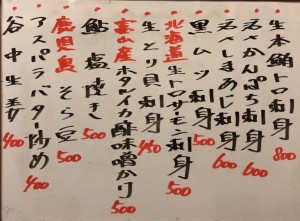 生本鮪トロ刺身 800
活かんぱち刺身 600
活しまあじ刺身 600
黒ムツ刺身 500
北海道 生トロサーモン刺身 500
生とり貝刺身 450
富山産 ホタルイカ酢味噌かけ 500
鮎塩焼き 500
鹿児島 そら豆 500
アスパラバター炒め 400
谷中生姜 400